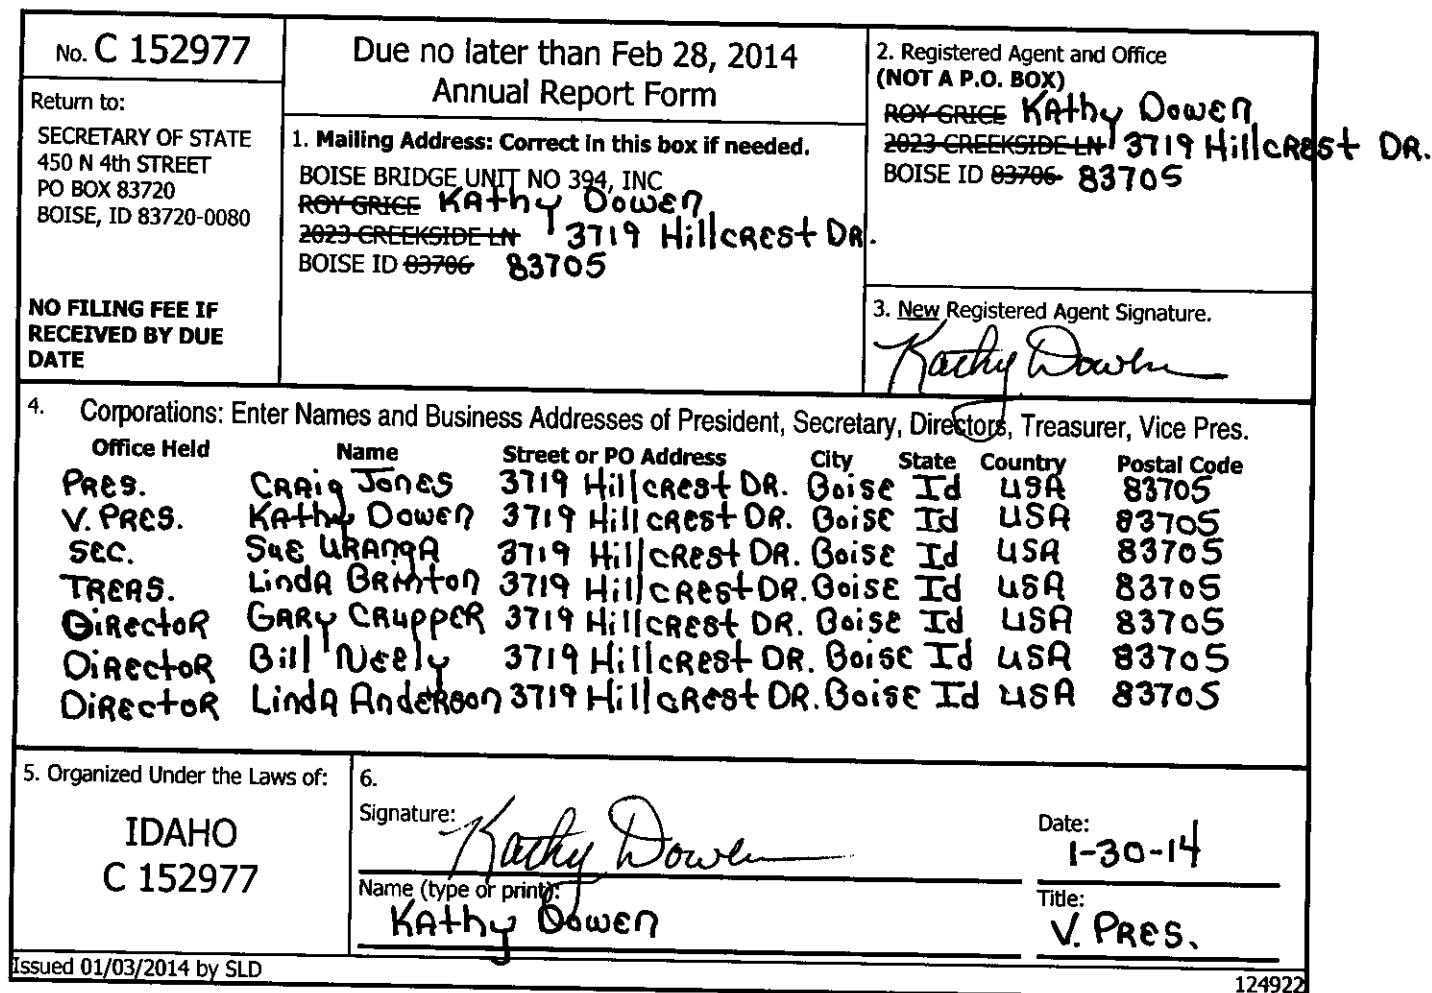 No. C 152977
Return to:
SECRETARY OF STATE
450 N 4th STREET
PO BOX 83720
BOISE, ID 83720-0080
NO FILING FEE IF
RECEIVED BY DUE
DATE
Due no later than Feb 28, 2014
Annual Report Form
1. Mailing Address: Correct in this box if needed.
BOISE BRIDGE UNIT NO 394, INC
ROY GRICE Kathy Dowen
2023 CREEKSIDE LN 3719 Hillcrest DR.
BOISE ID 83706 83705
2. Registered Agent and Office
(NOT A P.O. BOX)
ROY GRICE Kathy Dowen
2023 CREEKSIDE LN 3719 Hillcrest DR.
BOISE ID 83706 83705
3. New Registered Agent Signature.
Kathy Dowen
4. Corporations: Enter Names and Business Addresses of President, Secretary, Directors, Treasurer, Vice Pres.
Office Held Name Street or PO Address City State Country Postal Code
Pres. Craig Jones 3719 Hillcrest DR. Boise Id USA 83705
V. Pres. Kathy Dowen 3719 Hillcrest DR. Boise Id USA 83705
Sec. Sue Uranga 3719 Hillcrest DR. Boise Id USA 83705
Treas. Linda Brinton 3719 Hillcrest DR. Boise Id USA 83705
Director Gary Crupper 3719 Hillcrest DR. Boise Id USA 83705
Director Bill Neely 3719 Hillcrest DR. Boise Id USA 83705
Director Linda Anderson 3719 Hillcrest DR. Boise Id USA 83705
5. Organized Under the Laws of:
IDAHO
C 152977
6.
Signature: Kathy Dowen
Date:
1-30-14
Name (type or print):
Kathy Dowen
Title:
V. Pres.
Issued 01/03/2014 by SLD
124922